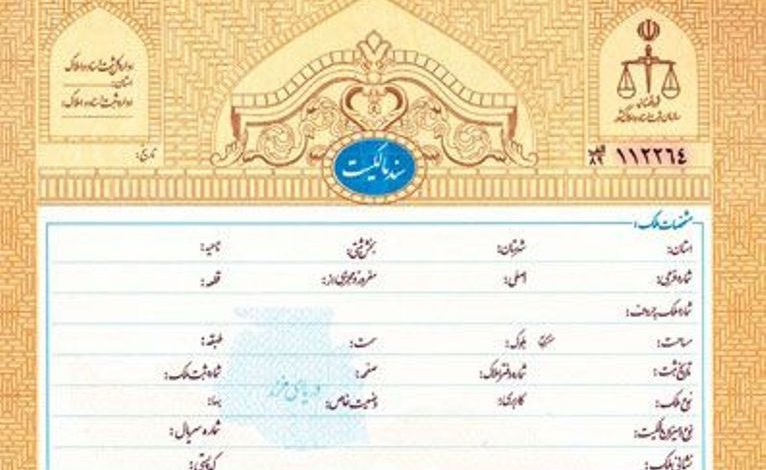 اداره کل ثبت اسناد و املاک
استان:
اداره ثبت اسناد و املاک:
تاریخ:
قوه قضائیه
سازمان ثبت اسناد و املاک کشور
۱۱۲۲۶۴ الف ۸۹
سند مالکیت
مشخصات ملک:
استان: شهرستان: بخش ثبتی: ناحیه:
شماره فرعی: اصلی: مفروز و مجزی از: قطعه:
شماره ملک به حروف:
مساحت: مترمربع بلوک: سمت: طبقه:
تاریخ ثبت: شماره دفتر املاک: صفحه: شماره ثبت ملک:
نوع ملک: کاربری: وضعیت خاص: بهاء:
دریای خزر
نوع و میزان مالکیت: شماره سریال:
نشانی ملک: کد پستی: